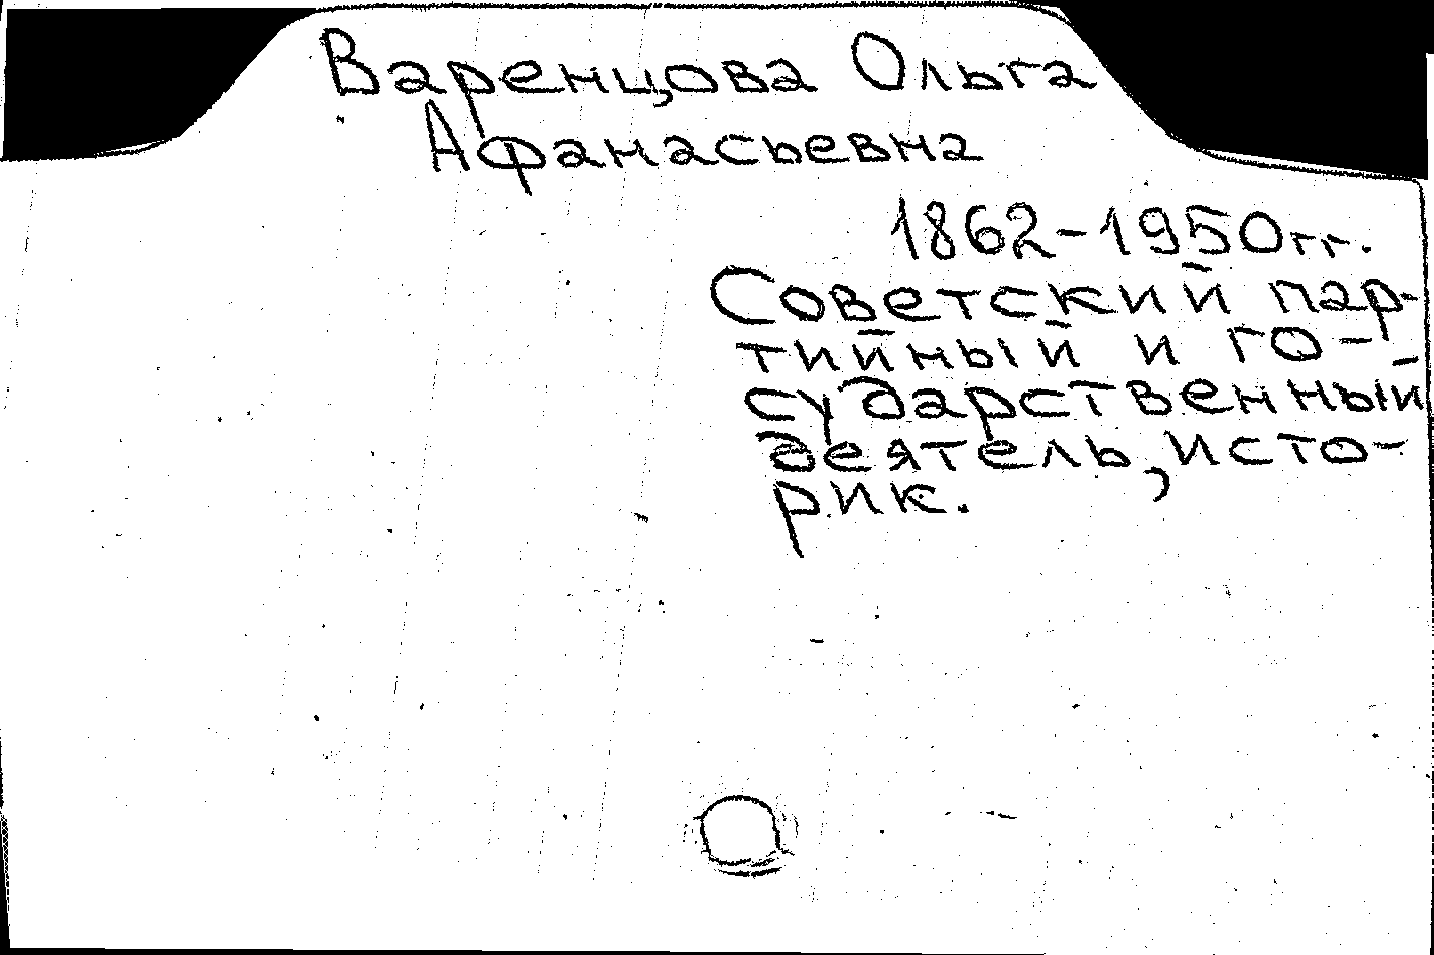 Варенцова Ольга
Афанасьевна
1862-1950гг.
Советский пар-
тийный и го-
сударственный
деятель, исто-
рик.